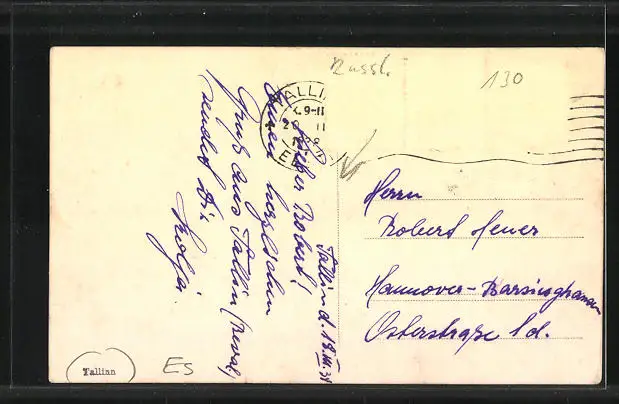 Russl.
130
TALLI
9-11
Tallin d. 18. III. 31
Lieber Robert!
Einen herzlichen
Gruß aus Tallin (Reval)
sendet Dir
Kolja.
Herrn
Robert Heuer
Hannover-Barsinghausen
Osterstraße 1d.
Tallinn
Es